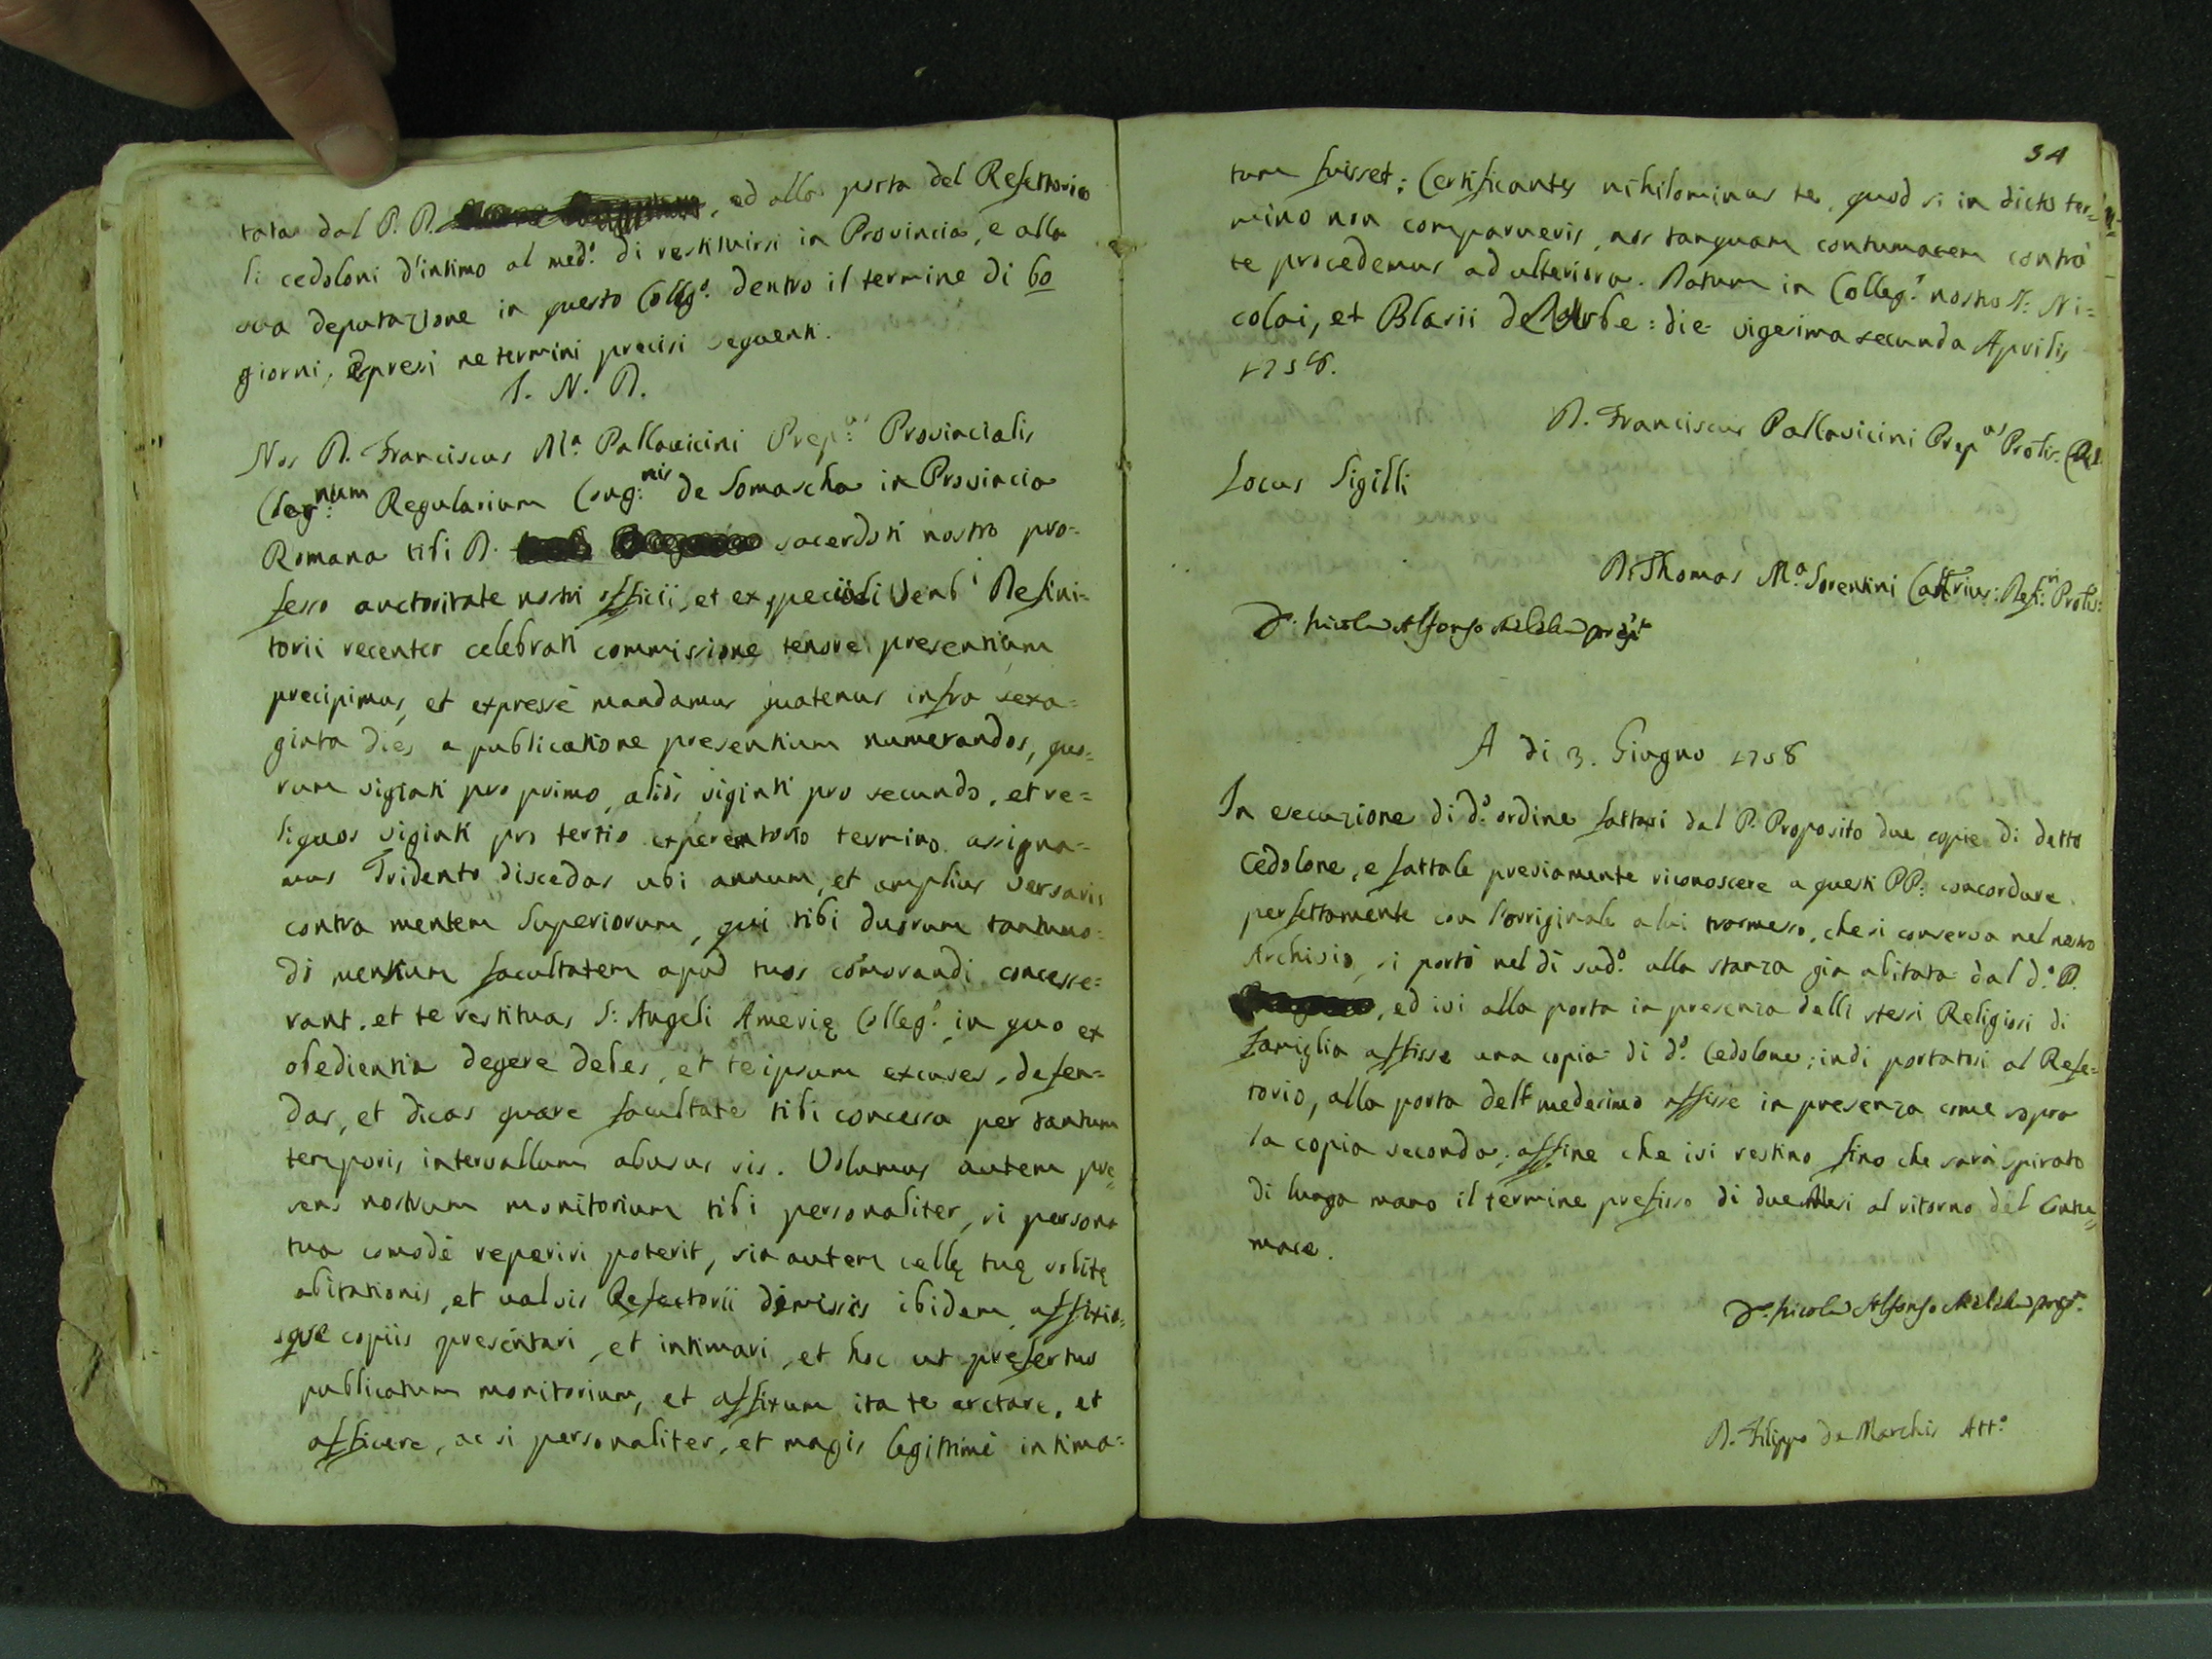 tata dal P. D. , ed alla porta del Refettorio
li cedoloni d'intimo al med.º di restituirsi in Provincia, e alla
sua deputazione in questo Colleg.º dentro il termine di 60
giorni, espresi ne termini precisi seguenti.
I. N. D.
Nos D. Franciscus M.ª Pallavicini Prep.us Provincialis
Cleg:num Regularium Cong:nis de Somascha in Provincia
Romana tibi D. sacerdoti nostro pro-
fesso auctoritate nostri officii, et ex speciali Venli Defini-
torii recenter celebrati commissione tenore presentium
precipimus, et expressè mandamus quatenus infra sexa=
ginta dies a publicatione presentium numerandos, quo-
rum viginti pro primo, aliis viginti pro secundo, et re=
liquos viginti pro tertio experentorio termino assigna=
mus Tridento discedas ubi annum, et amplius versaris
contra mentem Superiorum, qui tibi duorum tantumo=
do mensium facultatem apud tuos comorandi concesse=
rant. et te restituas S: Angeli Amerię Colleg.º in quo ex
obedientia degere debes, et te ipsum excuses, defen=
das, et dicas quare facultate tibi concessa per tantum
temporis intervallum abusus sis. Volumus autem pre=
sens nostrum monitorium tibi personaliter, si persona
tua comodè reperiri poterit, sin autem cellę tuę solitę
abitationis, et valvis Refectorii dimissis ibidem affixis=
sque copiis presentari, et intimari, et hoc ut prefertus
publicatum monitorium, et affixum ita te arctare, et
afficere, ac si personaliter, et magis legitimè intima=
34
tum fuisset; Certificantes nihilominus te, quod si in dicto ter=
mino non comparueris, nos tanquam contumacem contrà
te procedemus ad ulteriora. Datum in Colleg.º nostro SS. Ni=
colai, et Blasii de Urbe: die vigesima secunda Aprilis
1758.
D. Franciscus Pallavicini Prep.us Prolis. C.R.S.
Locus Sigilli
D. Thomas M.ª Sorentini Cattrius: Defi:ri Prolis:
D. Nicola Alfonso Melela prep.to
A di 3. Giugno 1758
In esecuzione di d.º ordine fattasi dal P. Proposito due copie di detto
Cedolone, e fattale previamente riconoscere a questi PP: concordare
perfettamente con l'orriginale a lui trasmesso, che si conserva nel nostro
Archivio, si portò nel di sud.º alla stanza gia abitata dal d.º P.
, ed ivi alla porta in presenza delli stessi Religiosi di
Famiglia affisse una copia di d.º Cedolone; indi portatosi al Refe=
torio, alla porta dell medesimo affisse in presenza come sopra
la copia seconda, affine che ivi restino fino che sarà spirato
di lunga mano il termine prefisso di due Mesi al ritorno del Contu=
mace.
D. Nicola Alfonso Melela prep.to
D. Filippo de Marchis Att.º